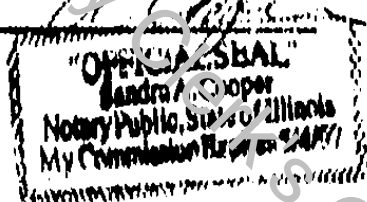 "OFFICIAL SEAL"
Sandra A. Cooper
Notary Public, State of Illinois
My Commission Expires
Clerk's